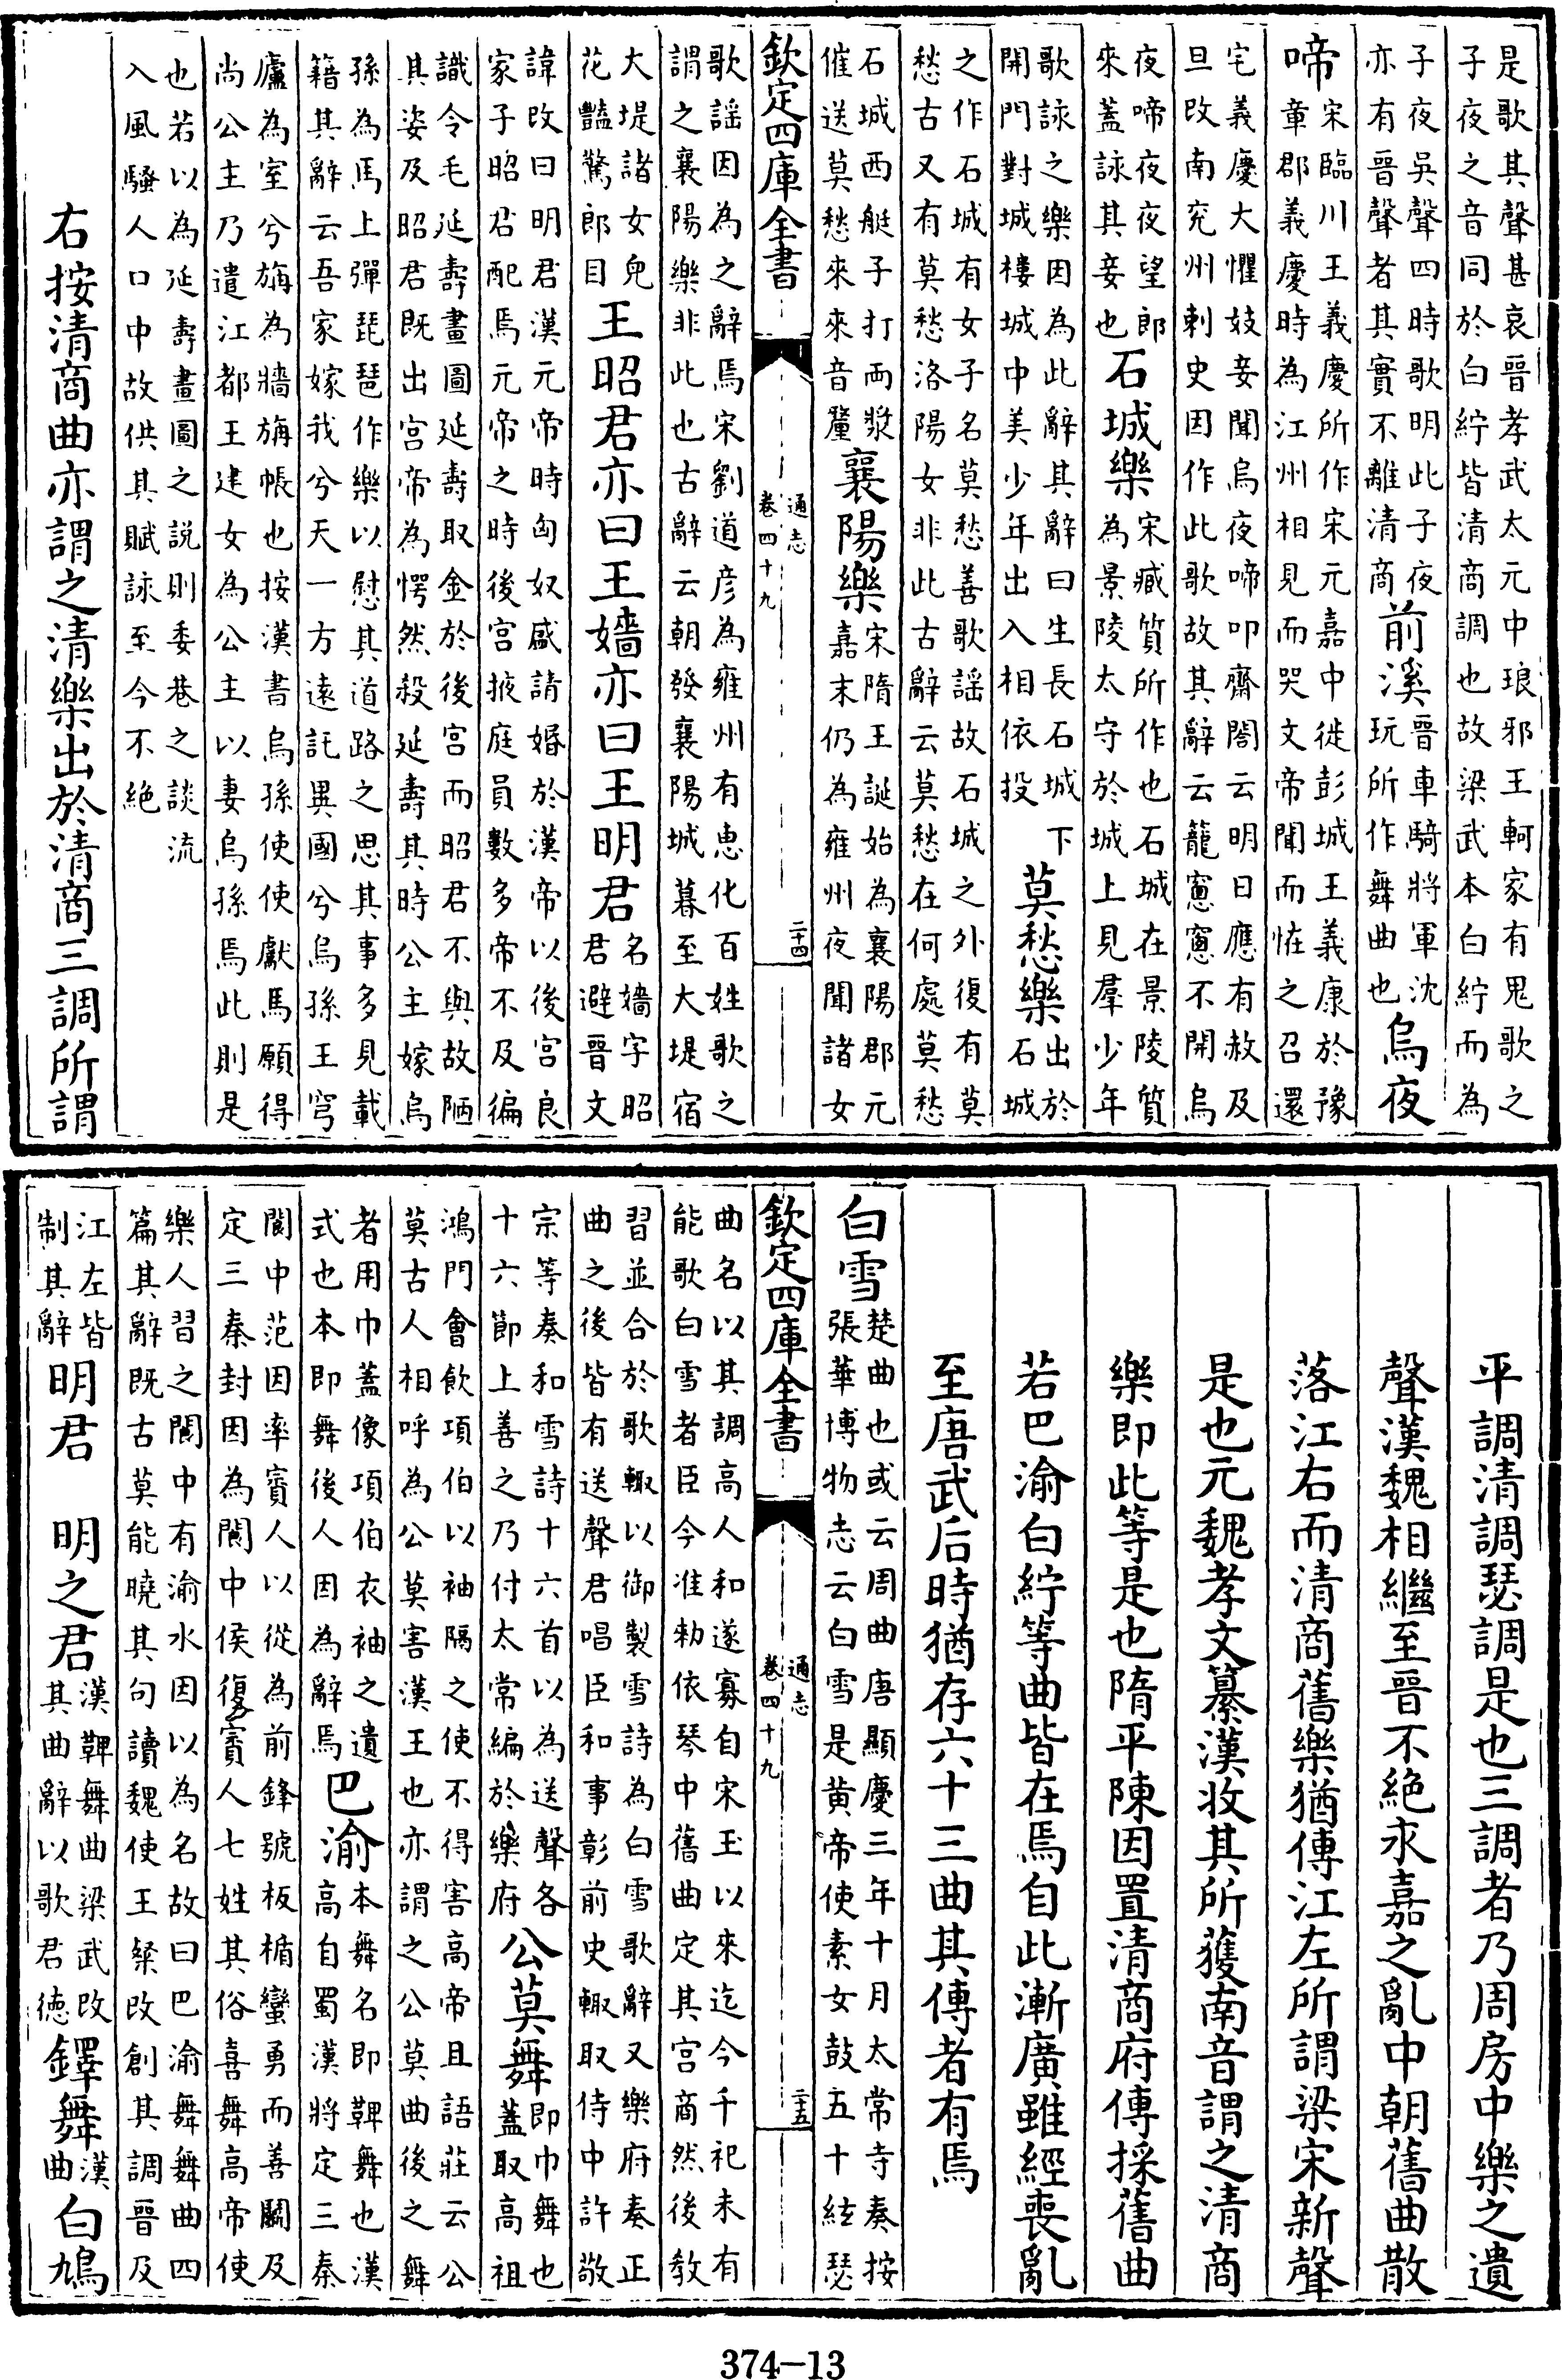 是歌其聲甚哀晉孝武太元中琅邪王軻家有鬼歌之
子夜之音同於白紵皆清商調也故梁武本白紵而為
子夜吳聲四時歌明此子夜
亦有晉聲者其實不離清商
前溪
晉車騎將軍沈
玩所作舞曲也
烏夜
啼
宋臨川王義慶所作宋元嘉中徙彭城王義康於豫
章郡義慶時為江州相見而哭文帝聞而恠之召還
宅義慶大懼妓妾聞烏夜啼叩齋閤云明日應有赦及
旦改南兖州刺史因作此歌故其辭云籠窻窻不開烏
夜啼夜夜望郎
來蓋詠其妾也
石城樂
宋臧質所作也石城在景陵質
為景陵太守於城上見羣少年
歌詠之樂因為此辭其辭曰生長石城下
開門對城樓城中美少年出入相依投
莫愁樂
出於
石城
之作石城有女子名莫愁善歌謠故石城之外復有莫
愁古又有莫愁洛陽女非此古辭云莫愁在何處莫愁
石城西艇子打兩漿
催送莫愁來來音釐
襄陽樂
宋隋王誕始為襄陽郡元
嘉末仍為雍州夜聞諸女
欽定四庫全書
通志
卷四十九
二十四
歌謠因為之辭焉宋劉道彥為雍州有惠化百姓歌之
謂之襄陽樂非此也古辭云朝發襄陽城暮至大堤宿
大堤諸女兒
花豔驚郎目
王昭君亦曰王嬙亦曰王明君
名嬙字昭
君避晉文
諱改曰明君漢元帝時匈奴盛請婚於漢帝以後宮良
家子昭君配焉元帝之時後宮掖庭員數多帝不及徧
識令毛延壽畫圖延壽取金於後宮而昭君不與故陋
其姿及昭君既出宮帝為愕然殺延壽其時公主嫁烏
孫為馬上彈琵琶作樂以慰其道路之思其事多見載
籍其辭云吾家嫁我兮天一方遠託異國兮烏孫王穹
廬為室兮旃為牆旃帳也按漢書烏孫使使獻馬願得
尚公主乃遣江都王建女為公主以妻烏孫焉此則是
也若以為延壽畫圖之說則委巷之談流
入風騷人口中故供其賦詠至今不絕
右按清商曲亦謂之清樂出於清商三調所謂
平調清調瑟調是也三調者乃周房中樂之遺
聲漢魏相繼至晉不絕永嘉之亂中朝舊曲散
落江右而清商舊樂猶傳江左所謂梁宋新聲
是也元魏孝文纂漢收其所獲南音謂之清商
樂即此等是也隋平陳因置清商府傳採舊曲
若巴渝白紵等曲皆在焉自此漸廣雖經喪亂
至唐武后時猶存六十三曲其傳者有焉
白雪
楚曲也或云周曲唐顯慶三年十月太常寺奏按
張華博物志云白雪是黃帝使素女鼓五十絃瑟
欽定四庫全書
通志
卷四十九
二十五
曲名以其調高人和遂寡自宋玉以來迄今千祀未有
能歌白雪者臣今准勅依琴中舊曲定其宮商然後教
習並合於歌輙以御製雪詩為白雪歌辭又樂府奏正
曲之後皆有送聲君唱臣和事彰前史輙取侍中許敬
宗等奏和雪詩十六首以為送聲各
十六節上善之乃付太常編於樂府
公莫舞
即巾舞也
蓋取高祖
鴻門會飲項伯以袖隔之使不得害高帝且語莊云公
莫古人相呼為公莫害漢王也亦謂之公莫曲後之舞
者用巾蓋像項伯衣袖之遺
式也本即舞後人因為辭焉
巴渝
本舞名即鞞舞也漢
高自蜀漢將定三秦
閬中范因率賨人以從為前鋒號板楯蠻勇而善鬭及
定三秦封因為閬中侯復賨人七姓其俗喜舞高帝使
樂人習之閬中有渝水因以為名故曰巴渝舞舞曲四
篇其辭既古莫能曉其句讀魏使王粲改創其調晉及
江左皆
制其辭
明君
明之君
漢鞞舞曲梁武改
其曲辭以歌君德
鐸舞
漢
曲
白鳩
374—13